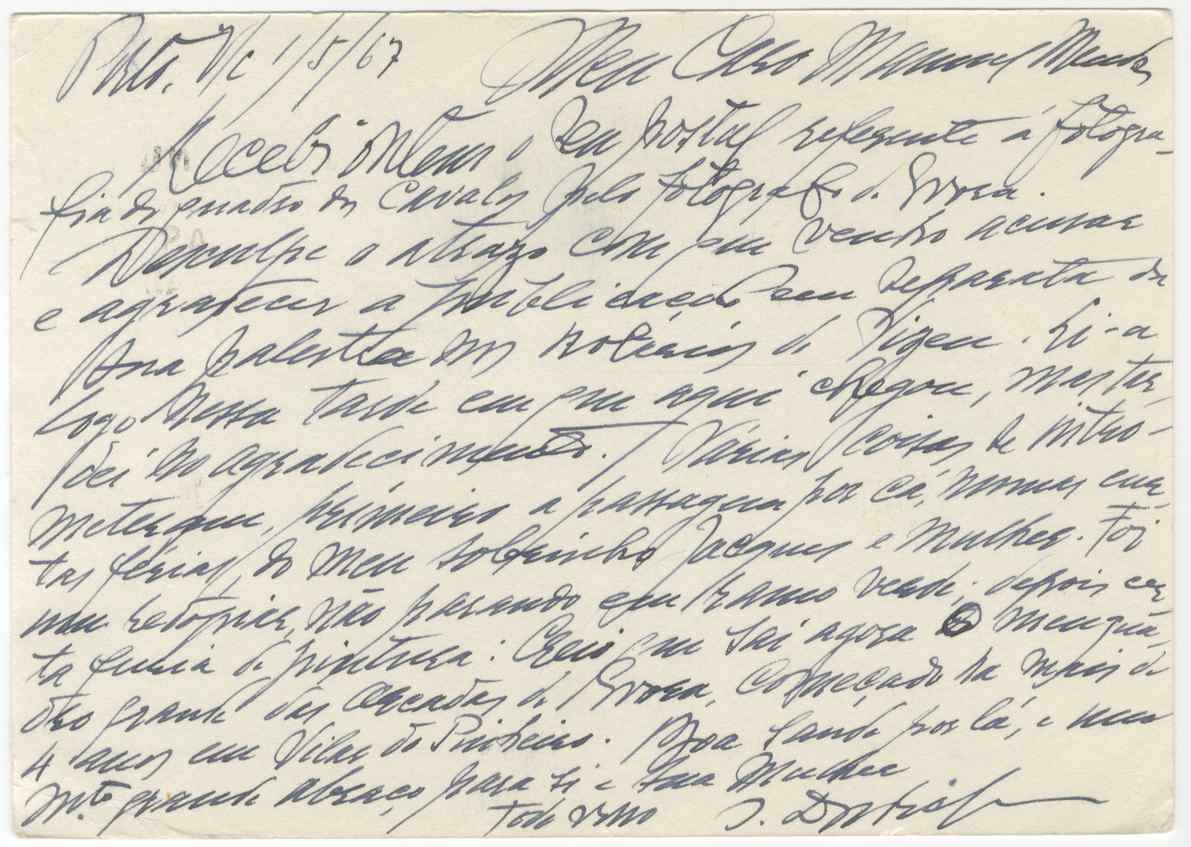 Porto, V/c 1/5/67 Meu Caro Manuel Mendes
Recebi ontem o seu postal referente á fotogra-
fia do quadro dos Cavalos pelo fotografo de Evora.
Desculpe o atrazo com que venho acusar
e agradecer a publicação em separata da
sua palestra nos de . Li-a
logo nessa tarde em que aqui chegou, mas tar-
dei no agradecimento. Várias coisas se intro-
meteram, primeiro a passagem por cá, numas cur-
tas férias, do meu sobrinho Jacques e mulher. Foi
num , não parando em ramo verde; depois cer-
ta furia de pintura: Creio que sai agora o meu qua-
dro grande das de Evora, começado ha mais de
4 anos em Vilar do Pinheiro. Boa saude por lá, e um
mto. grande abraço para si e sua Mulher
Todo vosso